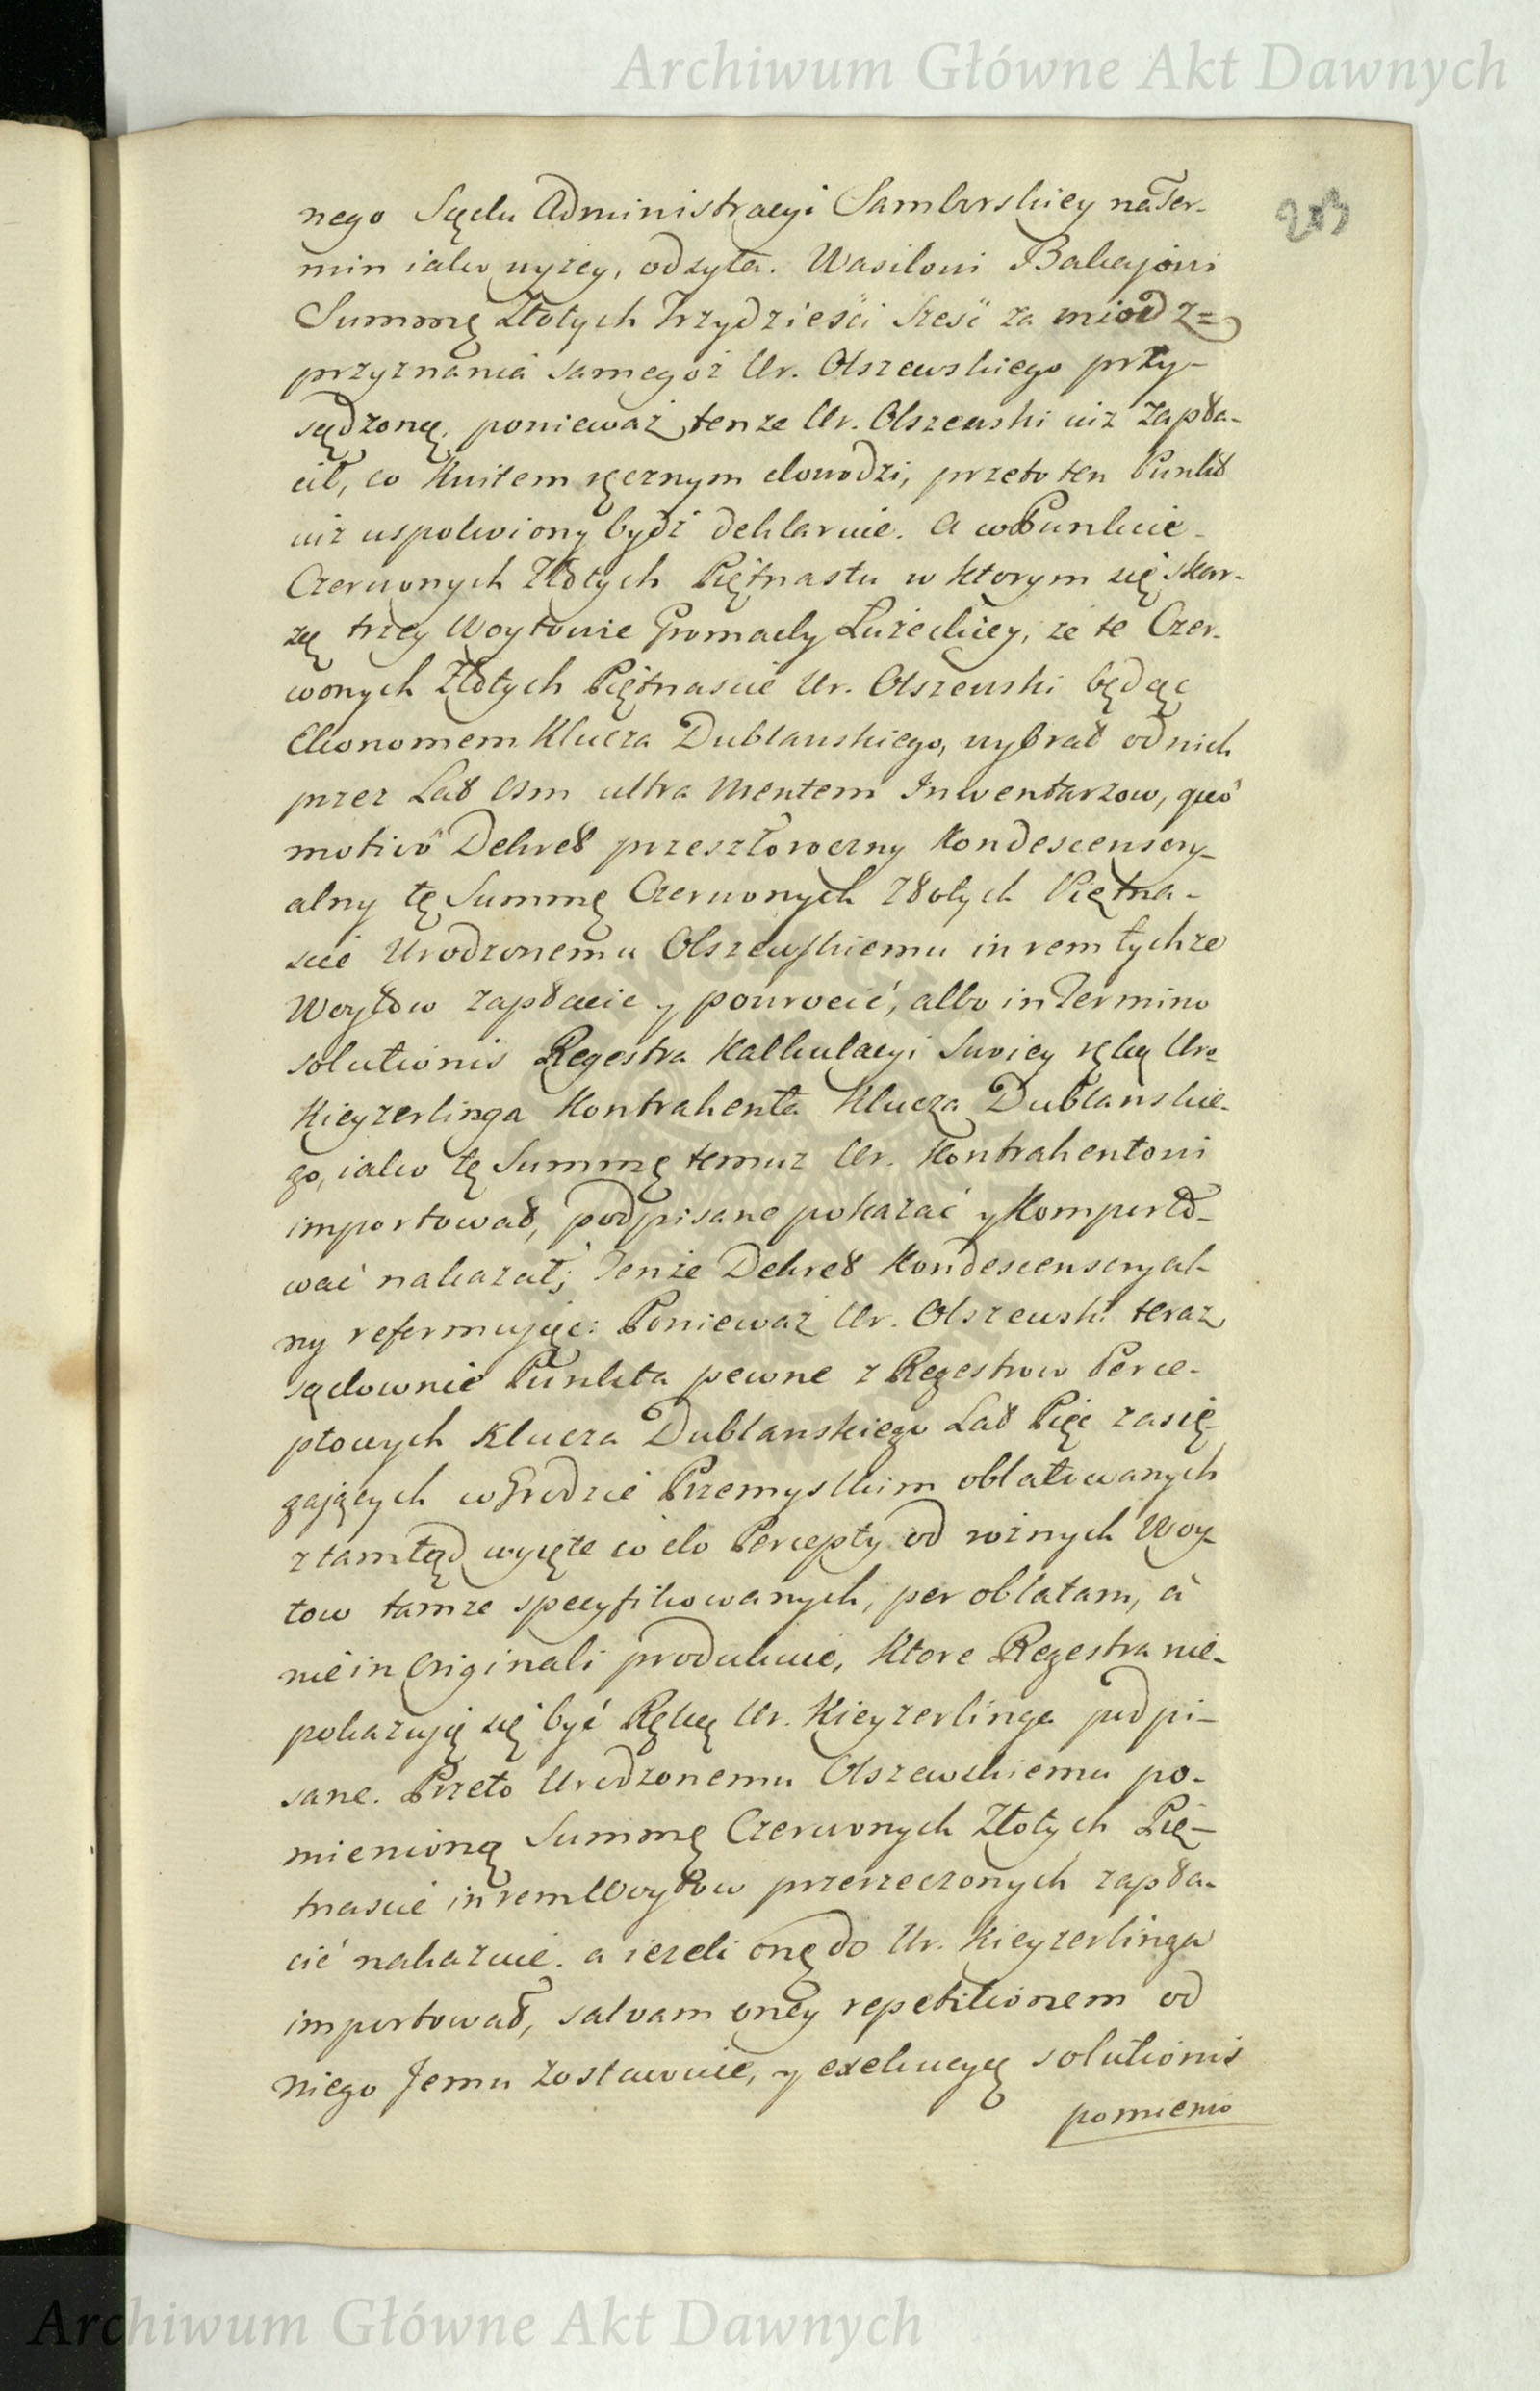 Archiwum Główne Akt Dawnych
203
nego Sądu Administracyi Samborskiey na Ter-
min iako wyżey, odsyła. Wasilowi Bakajowi
Summę Złotych Trzydzieści Sześć za miod z=
przyznania samegoż Ur. Olszewskiego przy-
sądzoną, ponieważ tenże Ur. Olszewski iuż zapła-
cił, co Kwitem ręcznym dowodzi, przeto ten Punkt
iuż uspokoiony bydź deklaruie. A w Punkcie
Czerwonych Złotych Piętnastu w ktorym się skar-
żą trzey Woytowie Gromady Łużeckiey, że te Czer-
wonych Złotych Piętnaście Ur. Olszewski będąc
Ekonomem Klucza Dublanskiego, wybrał od nich
przez Lat Osm ultra mentem Inwentarzow, quô
motivô Dekret przeszłoroczny Kondescensory-
alny tę Summę Czerwonych Złotych Piętna-
scie Urodzonemu Olszewskiemu in rem tychże
Woytow zapłacić y powrocić, albo in Termino
solutionis Regestra Kalkulacyi Swoiey ręką Ur.
Kieyzerlinga Kontrahenta Klucza Dublanskie-
go, iako tę Summę temuż Ur. Kontrahentowi
importował, podpisane pokazać y Komporto-
wać nakazał; Tenże Dekret Kondescensoryal-
ny reformując: Ponieważ Ur. Olszewski teraz
sądownie Punkta pewne z Regestrow Perce-
ptowych Klucza Dublanskiego Lat Pięc zasię-
gaiących w Grodzie Przemyslkim oblatowanych
ztamtąd wyięte co do Percepty od rożnych Woy-
tow tamże specyfikowanych, per oblatam, a
nie in Originali produkuie, Ktore Regestra nie-
pokazują się być Ręką Ur. Kieyzerlinga podpi-
sane. Przeto Urodzonemu Olszewskiemu po-
mienioną Summę Czerwonych Złotych Pię-
tnascie in rem Woytow przerzeczonych zapła-
cić nakazuie. a ieżeli onę do Ur. Kieyzerlinga
importował, salvam oney repetitionem od
niego Jemu zostawuie, y exekucyą solutionis
pomienio
Archiwum Główne Akt Dawnych